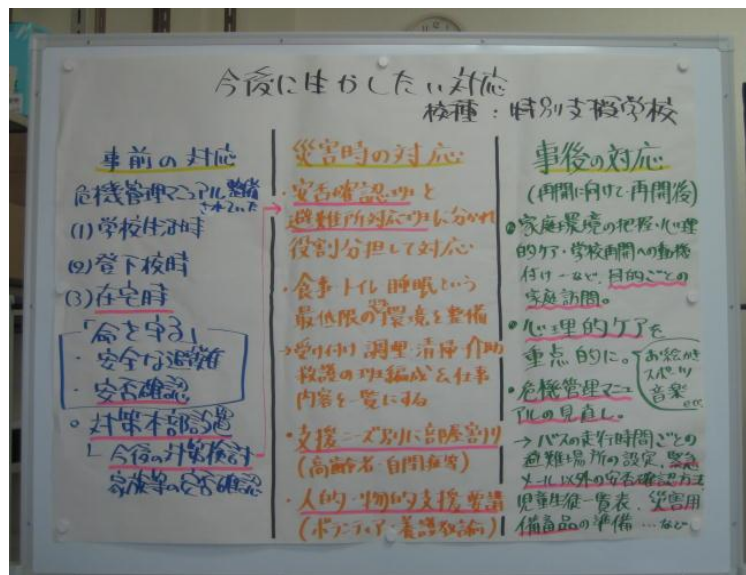 今後に生かしたい対応
校種：特別支援学校
事前の対応
危機管理マニュアル整備
されていた
(1)学校生活時
(2)登下校時
(3)在宅時
「命を守る」
・安全な避難
・安否確認
○対策本部設置
└今後の対策検討
家族等の安否確認
災害時の対応
・安否確認班と
避難所対応班に分かれ
役割分担して対応
・食事・トイレ・睡眠という
最低限の環境を整備
→受け付け・調理・清掃・介助
救護の班編成&仕事
内容を一覧にする
・支援ニーズ別に部屋割り
(高齢者・自閉症等)
・人的・物的支援要請
(ボランティア・養護教諭)
事後の対応
(再開に向けて・再開後)
●家庭環境の把握・心理
的ケア・学校再開への動機
付け…など、目的ごとの
家庭訪問。
●心理的ケアを
重点的に。
お絵かき
スポーツ
音楽
etc
・危機管理マニュ
アルの見直し。
→バスの走行時間ごとの
避難場所の設定、緊急
メール以外の安否確認方法
児童生徒一覧表、災害用
備蓄品の準備…など